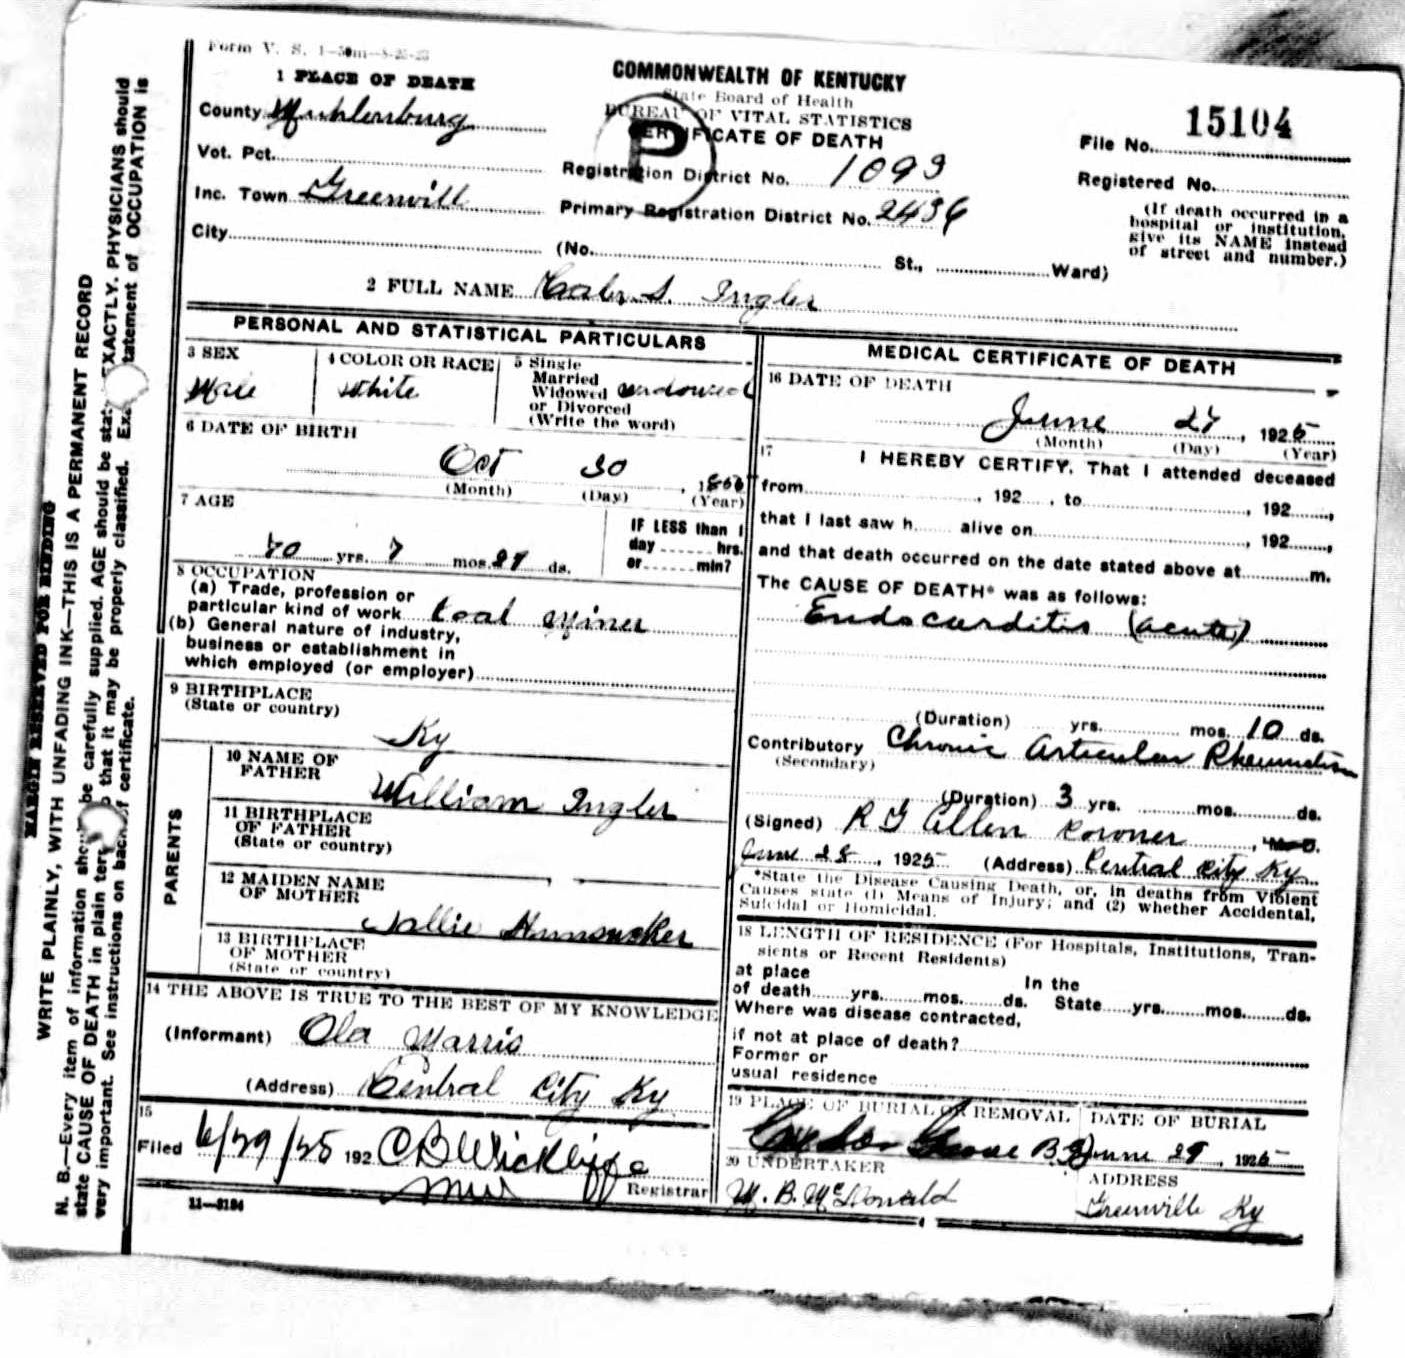 Form V. S. 1—50m—8-25-23
COMMONWEALTH OF KENTUCKY
State Board of Health
BUREAU OF VITAL STATISTICS
CERTIFICATE OF DEATH
P
1 PLACE OF DEATH
County Muhlenburg
Vot. Pct.
Inc. Town Greenvill
City
Registration District No. 1093
Primary Registration District No. 2436
(No. St., Ward)
File No. 15104
Registered No.
(If death occurred in a
hospital or institution,
give its NAME instead
of street and number.)
2 FULL NAME S. Ingler
PERSONAL AND STATISTICAL PARTICULARS
3 SEX
Male
4 COLOR OR RACE
White
5 Single
Married
Widowed widowed
or Divorced
(Write the word)
6 DATE OF BIRTH
Oct 30, 18
(Month) (Day) (Year)
7 AGE
70 yrs. 7 mos. 27 ds.
IF LESS than 1
day hrs.
or min?
8 OCCUPATION
(a) Trade, profession or
particular kind of work Coal Miner
(b) General nature of industry,
business or establishment in
which employed (or employer)
9 BIRTHPLACE
(State or country)
Ky
PARENTS
10 NAME OF
FATHER
William Ingler
11 BIRTHPLACE
OF FATHER
(State or country)
12 MAIDEN NAME
OF MOTHER
Sallie Hunsucker
13 BIRTHPLACE
OF MOTHER
(State or country)
14 THE ABOVE IS TRUE TO THE BEST OF MY KNOWLEDGE
(Informant) Ola Harris
(Address) Central City Ky
15
Filed 6/29/25 192 C B Wickliffe
Registrar
11—3184
MEDICAL CERTIFICATE OF DEATH
16 DATE OF DEATH
June 27, 1925
(Month) (Day) (Year)
17
I HEREBY CERTIFY, That I attended deceased
from , 192 , to , 192 ,
that I last saw h alive on , 192 ,
and that death occurred on the date stated above at m.
The CAUSE OF DEATH* was as follows:
Endocarditis (acute)
(Duration) yrs. mos. 10 ds.
Contributory Chronic Articular Rheumatism
(Secondary)
(Duration) 3 yrs. mos. ds.
(Signed) R G Allen Coroner, M. D.
June 28, 1925 (Address) Central City Ky
*State the Disease Causing Death, or, in deaths from Violent
Causes state (1) Means of Injury; and (2) whether Accidental,
Suicidal or Homicidal.
18 LENGTH OF RESIDENCE (For Hospitals, Institutions, Tran-
sients or Recent Residents)
at place In the
of death yrs. mos. ds. State yrs. mos. ds.
Where was disease contracted,
if not at place of death?
Former or
usual residence
19 PLACE OF BURIAL OR REMOVAL
Grove B G
DATE OF BURIAL
June 29, 1925
20 UNDERTAKER
M. B. McDonald
ADDRESS
Greenville Ky
MARGIN RESERVED FOR BINDING
WRITE PLAINLY, WITH UNFADING INK—THIS IS A PERMANENT RECORD
N. B.—Every item of information should be carefully supplied. AGE should be stated EXACTLY. PHYSICIANS should
state CAUSE OF DEATH in plain terms so that it may be properly classified. Exact statement of OCCUPATION is
very important. See instructions on back of certificate.